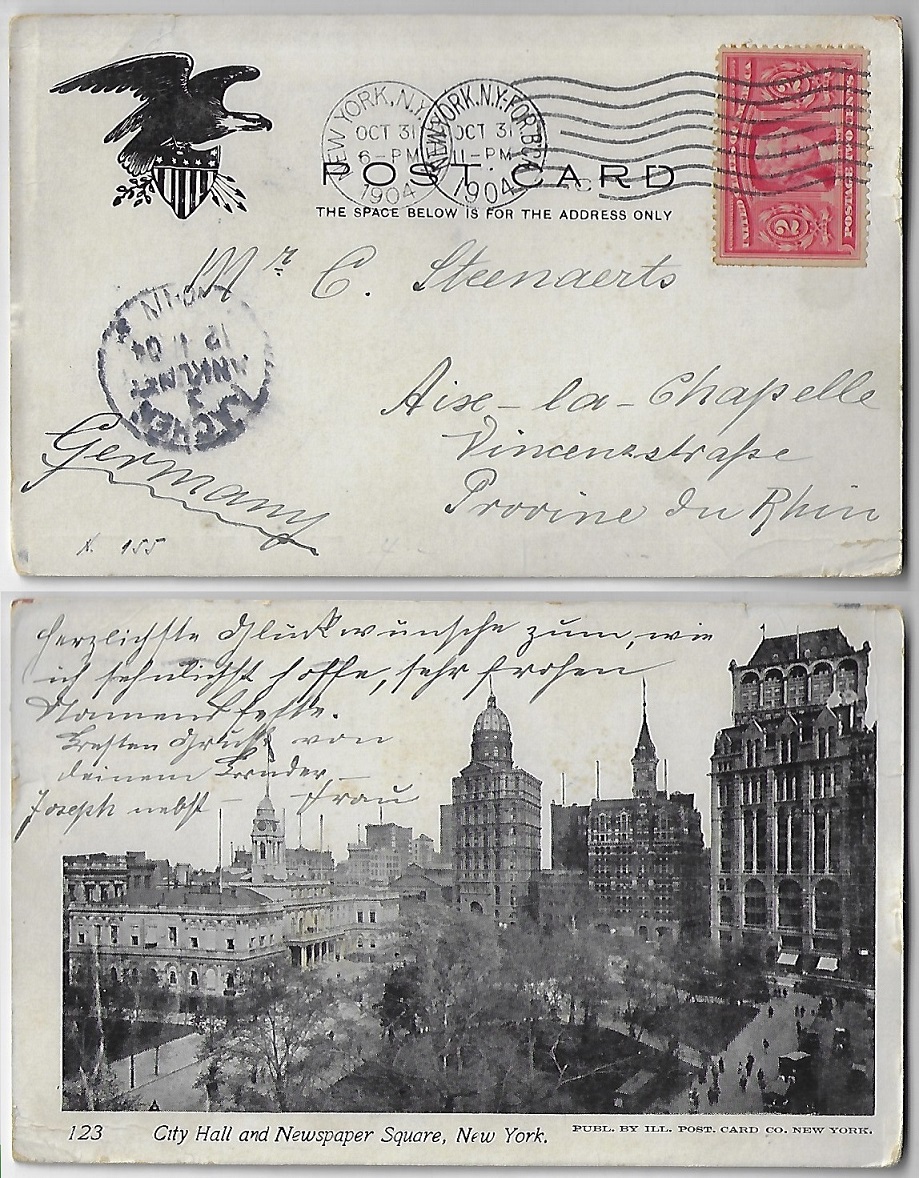 NEW YORK, N.Y.
OCT 31
6-PM
1904
NEW YORK, N.Y. FOR. BR.
OCT 31
11-PM
1904
POST CARD
THE SPACE BELOW IS FOR THE ADDRESS ONLY
POSTAGE TWO CENTS
2 2
Mr C. Steenaerts
Aixe-la-Chapelle
Vincenzstraße
Provine du Rhin
Germany
N. 155
Herzlichste Glückwünsche zum, wie
ich sehnlichst hoffe, sehr frohen
Namensfeste.
Besten Gruß von
deinem Bruder
Joseph nebst - Frau
123 City Hall and Newspaper Square, New York. PUBL. BY ILL. POST. CARD CO. NEW YORK.